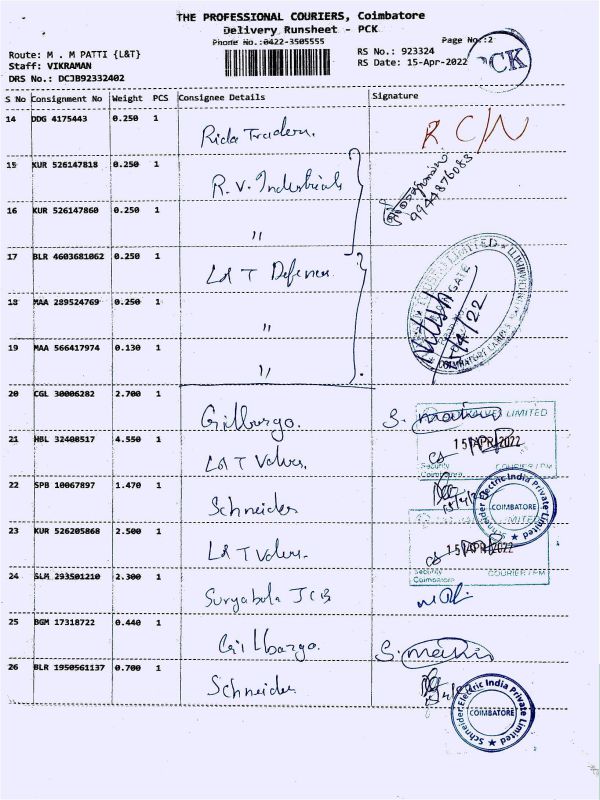 THE PROFESSIONAL COURIERS, Coimbatore
Delivery Runsheet - PCK
Phone No.:0422-3505555
Page No.:2
Route: M . M PATTI {L&T}
RS No.: 923324
Staff: VIKRAMAN
RS Date: 15-Apr-2022
PCK
DRS No.: DCJB92332402
S No Consignment No Weight PCS Consignee Details Signature
14 DDG 4175443 0.250 1 Rida Traders. R. C/N
15 KUR 526147818 0.250 1 R. V. Industrials
9944876083
16 KUR 526147860 0.250 1 "
17 BLR 4603681062 0.250 1 L& T Defence
18 MAA 289524769 0.250 1 "
19 MAA 566417974 0.130 1 "
20 CGL 30006282 2.700 1 Gilbargo. S.
LIMITED
21 HBL 32408517 4.550 1 L& T Valves. 15 APR 2022
Security
Coimbatore COURIER / PM
22 SPB 10067897 1.470 1 Schneider
Schneider Electric India Private Limited
COIMBATORE
23 KUR 526205868 2.500 1 L& T Valves. 15 APR 2022
Security
Coimbatore COURIER / PM
24 SLM 293501210 2.300 1 Suryabala JCB
25 BGM 17318722 0.440 1 Gilbargo. S.
26 BLR 1950561137 0.700 1 Schneider
Schneider Electric India Private Limited
COIMBATORE